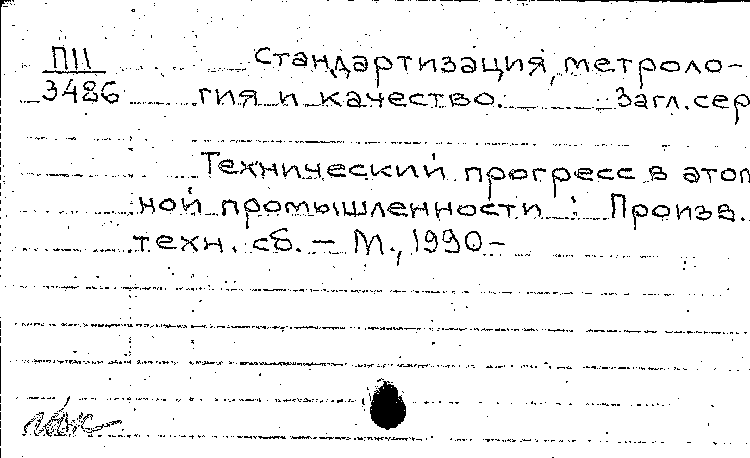 П11
3486
Стандартизация, метроло-
гия и качество. Загл. сер
Технический прогресс в атом
ной промышленности : Произв.
техн. сб. – М., 1990–